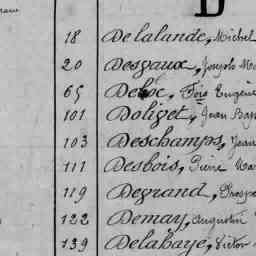 D
18 Delalande, Michel
20 Desgaux, Joseph Ma
65 Deloc, Fois Eugène
101 Doliget, Jean Bap
103 Deschamps, Jean
111 Desbois, Pierre Ma
119 Degrand, Prosp
122 Demay, Augustin
139 Delahaye, Victor